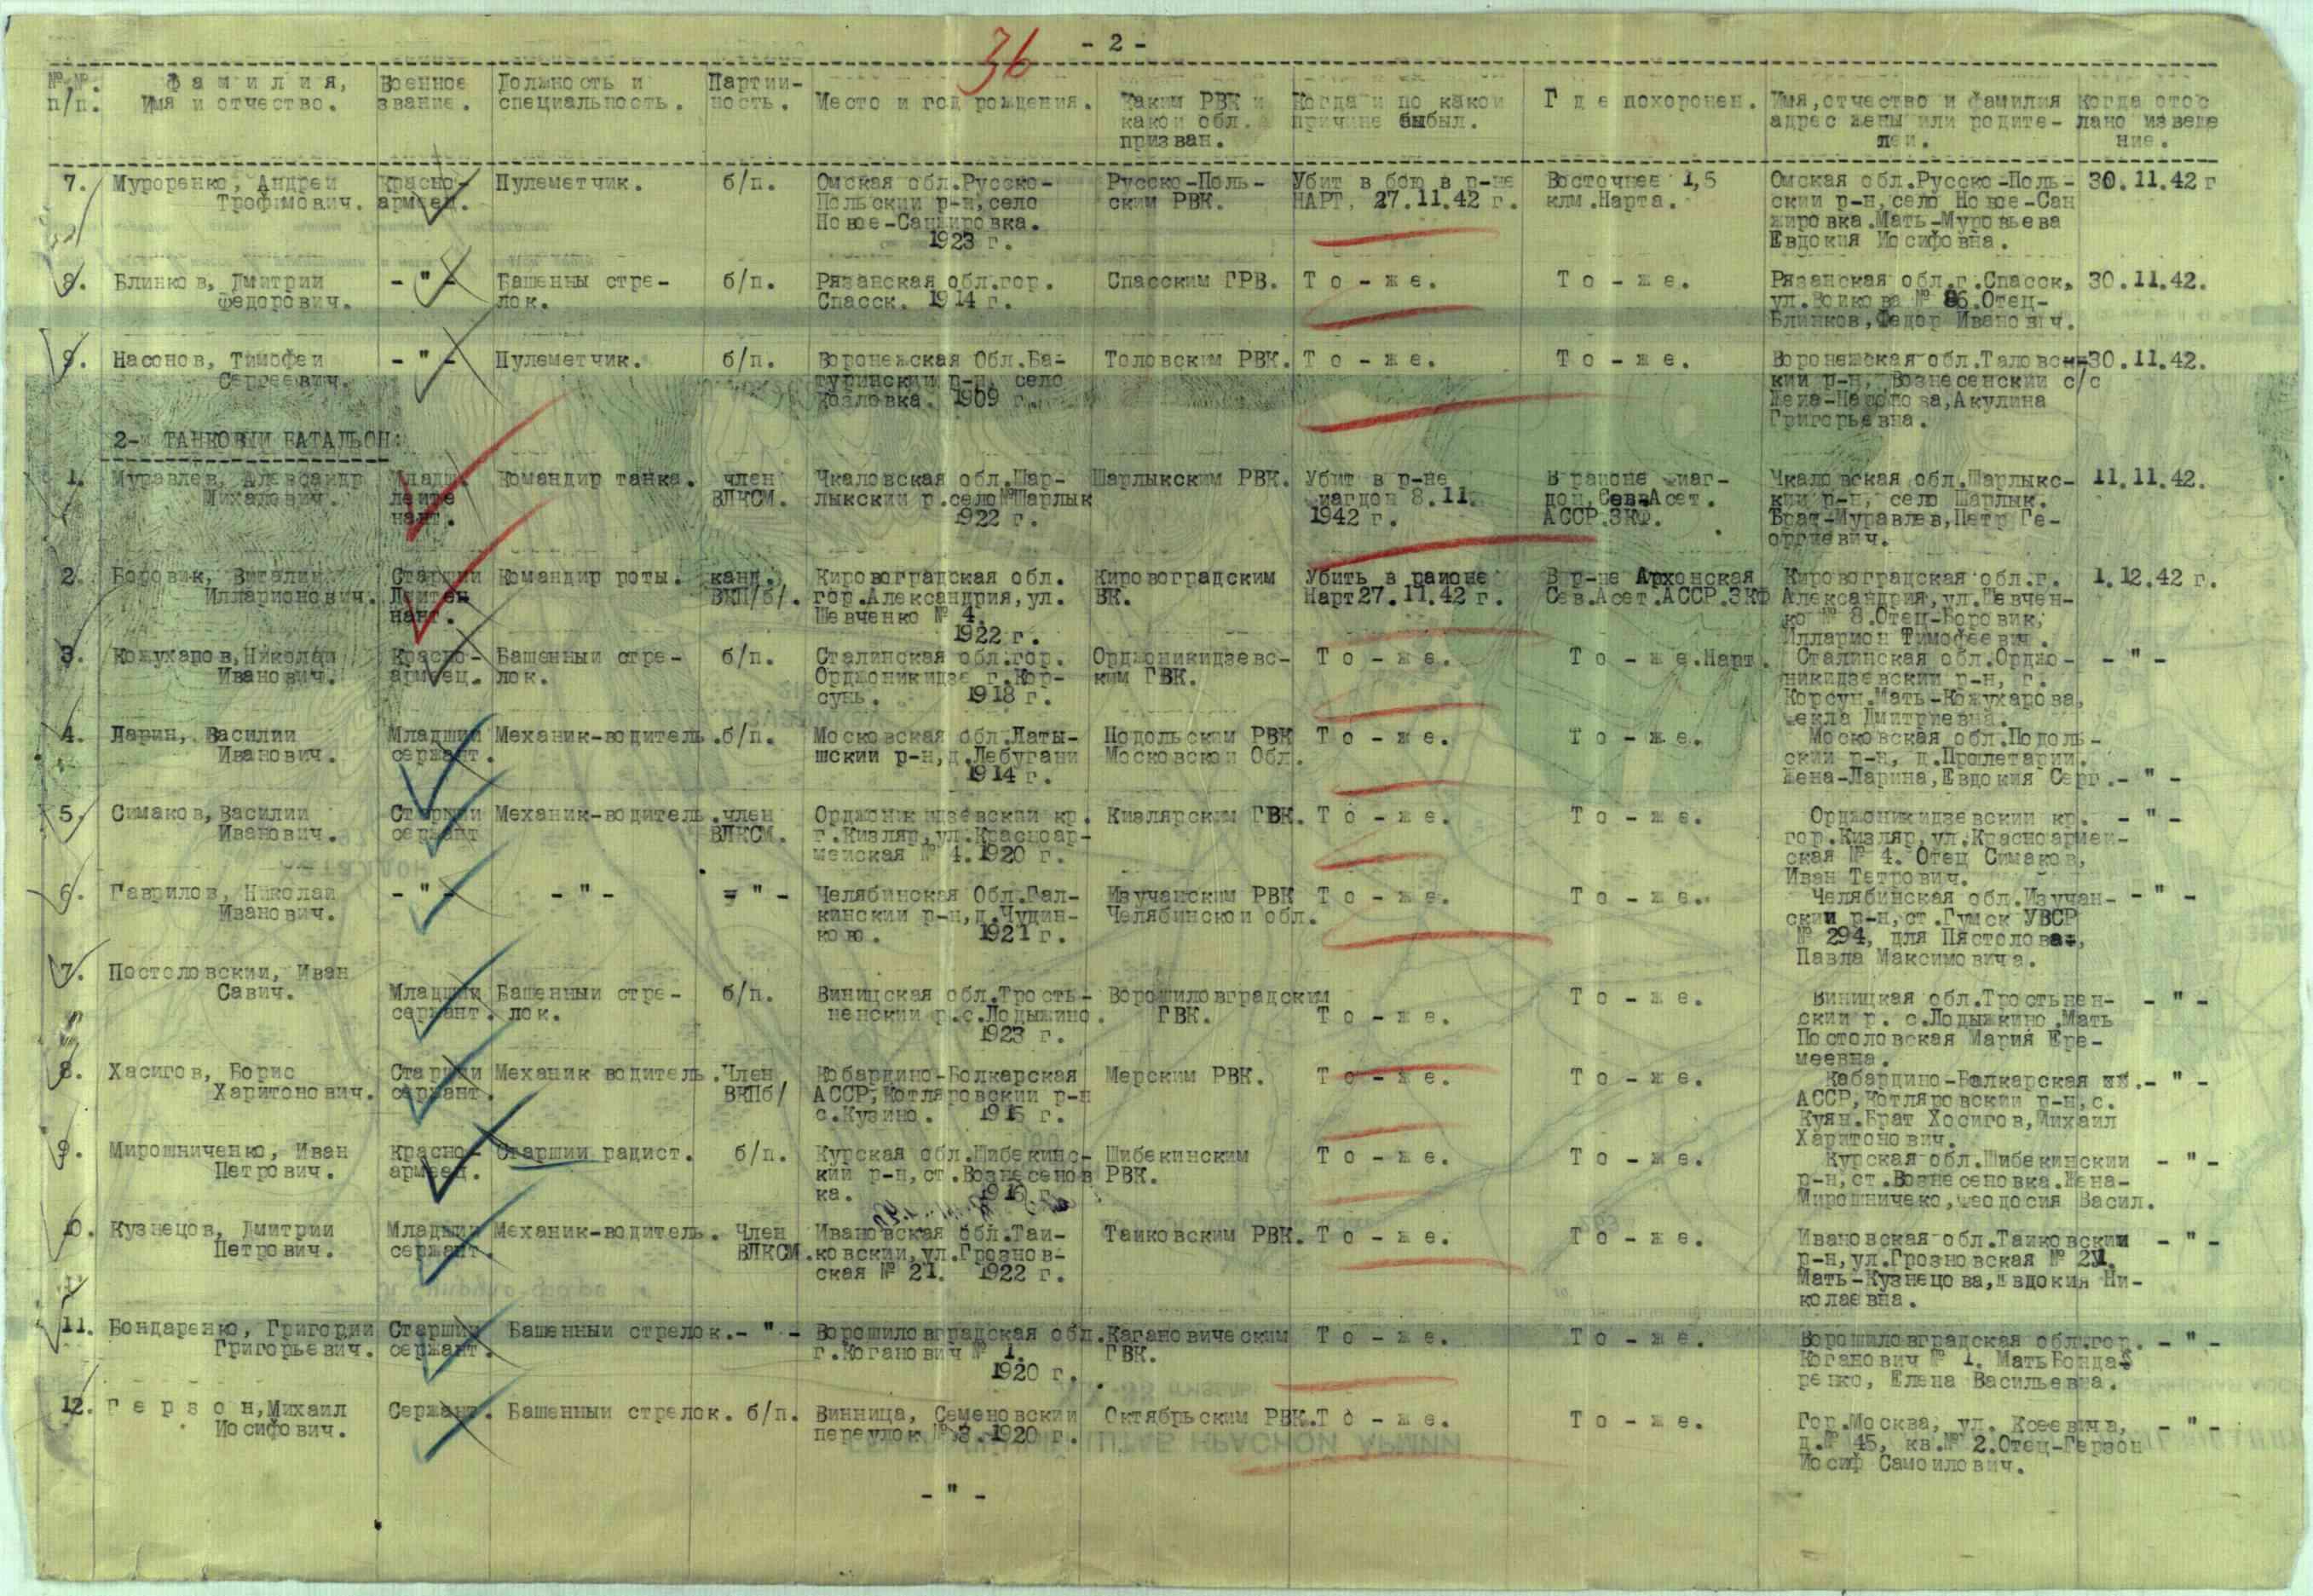 36
- 2 -
№.№. п/п.
Фамилия, Имя и отчество.
Военное звание.
Должность и специальность.
Партийность.
Место и год рождения.
Каким РВК и какой обл. призван.
Когда и по какой причине выбыл.
Где похоронен.
Имя, отчество и фамилия адрес жены или родителей.
Когда отослано извещение.
7. Муроренко, Андрей Трофимович.
Красноармеец.
Пулеметчик.
б/п.
Омская обл.Русско-
Польский р-н, село
Новое-Санжировка.
1923 г.
Русско-Польским РВК.
Убит в бою в р-не
НАРТ, 27.11.42 г.
Восточнее 1,5
клм.Нарта.
Омская обл.Русско-Поль-
ский р-н, село Новое-Сан
жировка.Мать-Муровьева
Евдокия Иосифовна.
30.11.42 г
8. Блинков, Дмитрий
Федорович.
- " -
Башенны стре-
лок.
б/п.
Рязанская обл.гор.
Спасск. 1914 г.
Спасским ГРВ.
То - же.
То - же.
Рязанская обл.г.Спасск,
ул.Войкова № 86.Отец-
Блинков, Федор Иванович.
30.11.42.
9. Насонов, Тимофей
Сергеевич.
- " -
Пулеметчик.
б/п.
Воронежская Обл.Ба-
туринский р-н, село
Козловка. 1909 г.
Толовским РВК.
То - же.
То - же.
Воронежская обл.Таловс
кий р-н, Вознесенский с/с
Григорьевна.
30.11.42.
2-й ТАНКОВЫЙ БАТАЛЬОН:
1. Муравлев, Александр
Михалович.
Младш.
лейте
нант.
Командир танка.
член
ВЛКСМ.
Чкаловская обл.Шар-
лыкский р.село Шарлык
1922 г.
Шарлыкским РВК.
Убит в р-не
8.11.
1942 г.
В районе
АССР.ЗКФ.
Чкаловская обл.Шарлыкс-
кий р-н, село Шарлык.
Брат-Муравлев, Петр Ге-
оргиевич.
11.11.42.
2. Боровик, Виталий
Илларионович.
Старший
Лейтен
нант.
Командир роты.
канд.
ВКП/б/.
Кировоградская обл.
гор.Александрия, ул.
Шевченко № 4.
1922 г.
Кировоградским
ВК.
Убить в районе
Нарт 27.11.42 г.
В р-не Архонская
Сев.Асет.АССР.ЗКФ
Кировоградская обл.г.
Александрия, ул.Шевчен-
ко № 8.Отец-Боровик,
Илларион Тимофеевич.
1.12.42 г.
3. Кожухаров, Николай
Иванович.
Красно-
армеец.
Башенный стре-
лок.
б/п.
Сталинская обл.гор.
Орджоникидзе г.Кор-
сунь. 1918 г.
Орджоникидзевс-
ким ГВК.
То - же.
То - же.Нарт.
Сталинская обл.Орджо-
никидзевский р-н, г.
Корсун.Мать-Кожухарова,
Дмитриевна.
- " -
4. Ларин, Василий
Иванович.
Младший
сержант.
Механик-водитель.
б/п.
Московская обл.Латы-
шский р-н, д.Лебугани
1914 г.
Подольским РВК
Московской Обл.
То - же.
То - же.
Московская обл.Подоль-
ский р-н, д.Пролетарий.
Жена-Ларина, Евдокия Серг.
- " -
5. Симаков, Василий
Иванович.
Старший
сержант
Механик-водитель.
член
ВЛКСМ.
Орджоникидзевский кр.
г.Кизляр, ул.Красноар-
мейская № 4. 1920 г.
Кизлярским ГВК.
То - же.
То - же.
Орджоникидзевский кр.
гор.Кизляр, ул.Красноармей-
ская № 4. Отец Симаков,
Иван Тетрович.
- " -
6. Гаврилов, Николай
Иванович.
- " -
- " -
- " -
Челябинская Обл.Гал-
кинский р-н, д.Чудин-
ково. 1921 г.
Изучанским РВК
Челябинской обл.
То - же.
То - же.
Челябинская обл.Изучан-
ский р-н, ст.Гумск УВСР
№ 294, для Пястолова,
Павла Максимовича.
- " -
7. Постоловский, Иван
Савич.
Младший
сержант.
Башенный стре-
лок.
б/п.
Виницская обл.Трость-
ненский р.с.Лодыжино.
1923 г.
Ворошиловградским
ГВК.
То - же.
То - же.
Виницкая обл.Тростьнен-
ский р. с.Лодыжкино.Мать
Постоловская Мария Ере-
меевна.
- " -
8. Хасигов, Борис
Харитонович.
Старший
сержант.
Механик водитель.
Член
ВКПб/
Кобардино-Болкарская
АССР, Котляровский р-н
с.Кузино. 1915 г.
Мерским РВК.
То - же.
То - же.
Кабардино-Балкарская
АССР, Котляровский р-н, с.
Куян.Брат Хосигов, Михаил
Харитонович.
- " -
9. Мирошниченко, Иван
Петрович.
Красно-
армеец.
Старший радист.
б/п.
Курская обл.Шибекинс-
кий р-н, ст.Вознесенов
ка. 1916 г.
Шибекинским
РВК.
То - же.
То - же.
Курская обл.Шибекинский
р-н, ст.Вознесеновка.Жена-
Мирошничеко, Феодосия Васил.
- " -
10. Кузнецов, Дмитрий
Петрович.
Младший
сержант.
Механик-водитель.
Член
ВЛКСМ.
Ивановская обл.Таи-
ковский, ул.Грознов-
ская № 21. 1922 г.
Таиковским РВК.
То - же.
То - же.
Ивановская обл.Таиковский
р-н, ул.Грозновская № 21.
Мать-Кузнецова, Евдокия Ни-
колаевна.
- " -
11. Бондаренко, Григорий
Григорьевич.
Старший
сержант.
Башенный стрелок.
- " -
Ворошиловградская обл.
г.Коганович № 1.
1920 г.
Кагановическим
ГВК.
То - же.
То - же.
Ворошиловградская обл.гор.
Коганович № 1. Мать Бонда-
ренко, Елена Васильевна.
- " -
12. Герзон, Михаил
Иосифович.
Сержант.
Башенный стрелок.
б/п.
Винница, Семеновский
переулок № 3. 1920 г.
Октябрьским РВК.
То - же.
То - же.
Гор.Москва, ул.
д.№ 45, кв.№ 2.Отец-Герзон
Иосиф Самоилович.
- " -
- " -